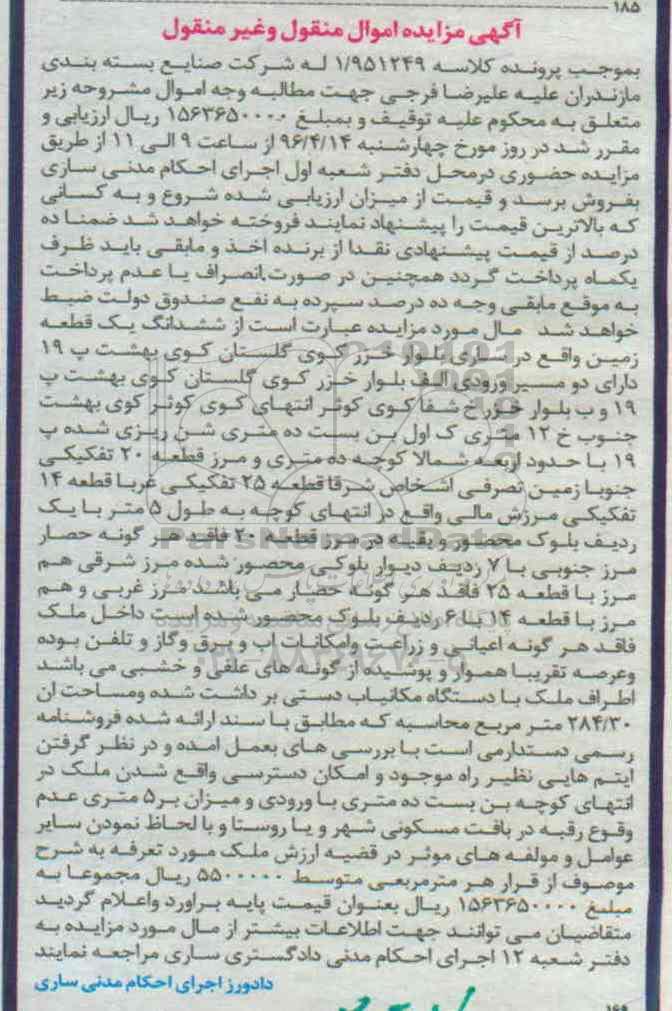 ۱۸۵
آگهی مزایده اموال منقول وغیر منقول
بموجب پرونده کلاسه ۱/۹۵۱۲۴۹ له شرکت صنایع بسته بندی
مازندران علیه علیرضا فرجی جهت مطالبه وجه اموال مشروحه زیر
متعلق به محکوم علیه توقیف و بمبلغ ۱۵۶۳۶۵۰۰۰۰ ریال ارزیابی و
مقرر شد در روز مورخ چهارشنبه ۹۶/۴/۱۴ از ساعت ۹ الی ۱۱ از طریق
مزایده حضوری درمحل دفتر شعبه اول اجرای احکام مدنی ساری
بفروش برسد و قیمت از میزان ارزیابی شده شروع و به کسانی
که بالاترین قیمت را پیشنهاد نمایند فروخته خواهد شد ضمنا ده
درصد از قیمت پیشنهادی نقدا از برنده اخذ و مابقی باید ظرف
یکماه پرداخت گردد همچنین در صورت انصراف یا عدم پرداخت
به موقع مابقی وجه ده درصد سپرده به نفع صندوق دولت ضبط
خواهد شد مال مورد مزایده عبارت است از ششدانگ یک قطعه
زمین واقع در ساری بلوار خزر کوی گلستان کوی بهشت پ ۱۹
دارای دو مسیر ورودی الف بلوار خزر کوی گلستان کوی بهشت پ
۱۹ و ب بلوار خزر خ شفا کوی کوثر انتهای کوی کوثر کوی بهشت
جنوب خ ۱۲ متری ک اول بن بست ده متری شن ریزی شده پ
۱۹ با حدود اربعه شمالا کوچه ده متری و مرز قطعه ۲۰ تفکیکی
جنوبا زمین تصرفی اشخاص شرقا قطعه ۲۵ تفکیکی غربا قطعه ۱۴
تفکیکی مرزش مالی واقع در انتهای کوچه به طول ۵ متر با یک
ردیف بلوک محصور و بقیه در مرز قطعه ۲۰ فاقد هر گونه حصار
مرز جنوبی با ۷ ردیف دیوار بلوکی محصور شده مرز شرقی هم
مرز با قطعه ۲۵ فاقد هر گونه حصار می باشد مرز غربی و هم
مرز با قطعه ۱۴ با ۶ ردیف بلوک محصور شده است داخل ملک
فاقد هر گونه اعیانی و زراعت وامکانات اب و برق وگاز و تلفن بوده
وعرصه تقریبا هموار و پوشیده از گونه های علفی و خشبی می باشد
اطراف ملک با دستگاه مکانیاب دستی بر داشت شده ومساحت ان
۲۸۴/۳۰ متر مربع محاسبه که مطابق با سند ارائه شده فروشنامه
رسمی دستدارمی است با بررسی های بعمل امده و در نظر گرفتن
ایتم هایی نظیر راه موجود و امکان دسترسی واقع شدن ملک در
انتهای کوچه بن بست ده متری با ورودی و میزان بر۵ متری عدم
وقوع رقبه در بافت مسکونی شهر و یا روستا و با لحاظ نمودن سایر
عوامل و مولفه های موثر در قضیه ارزش ملک مورد تعرفه به شرح
موصوف از قرار هر مترمربعی متوسط ۵۵۰۰۰۰۰ ریال مجموعا به
مبلیغ ۱۵۶۳۶۵۰۰۰۰ ریال بعنوان قیمت پایه براورد واعلام گردید
متقاضیان می توانند جهت اطلاعات بیشتر از مال مورد مزایده به
دفتر شعبه ۱۲ اجرای احکام مدنی دادگستری ساری مراجعه نمایند
دادورز اجرای احکام مدنی ساری
ParsNamadData